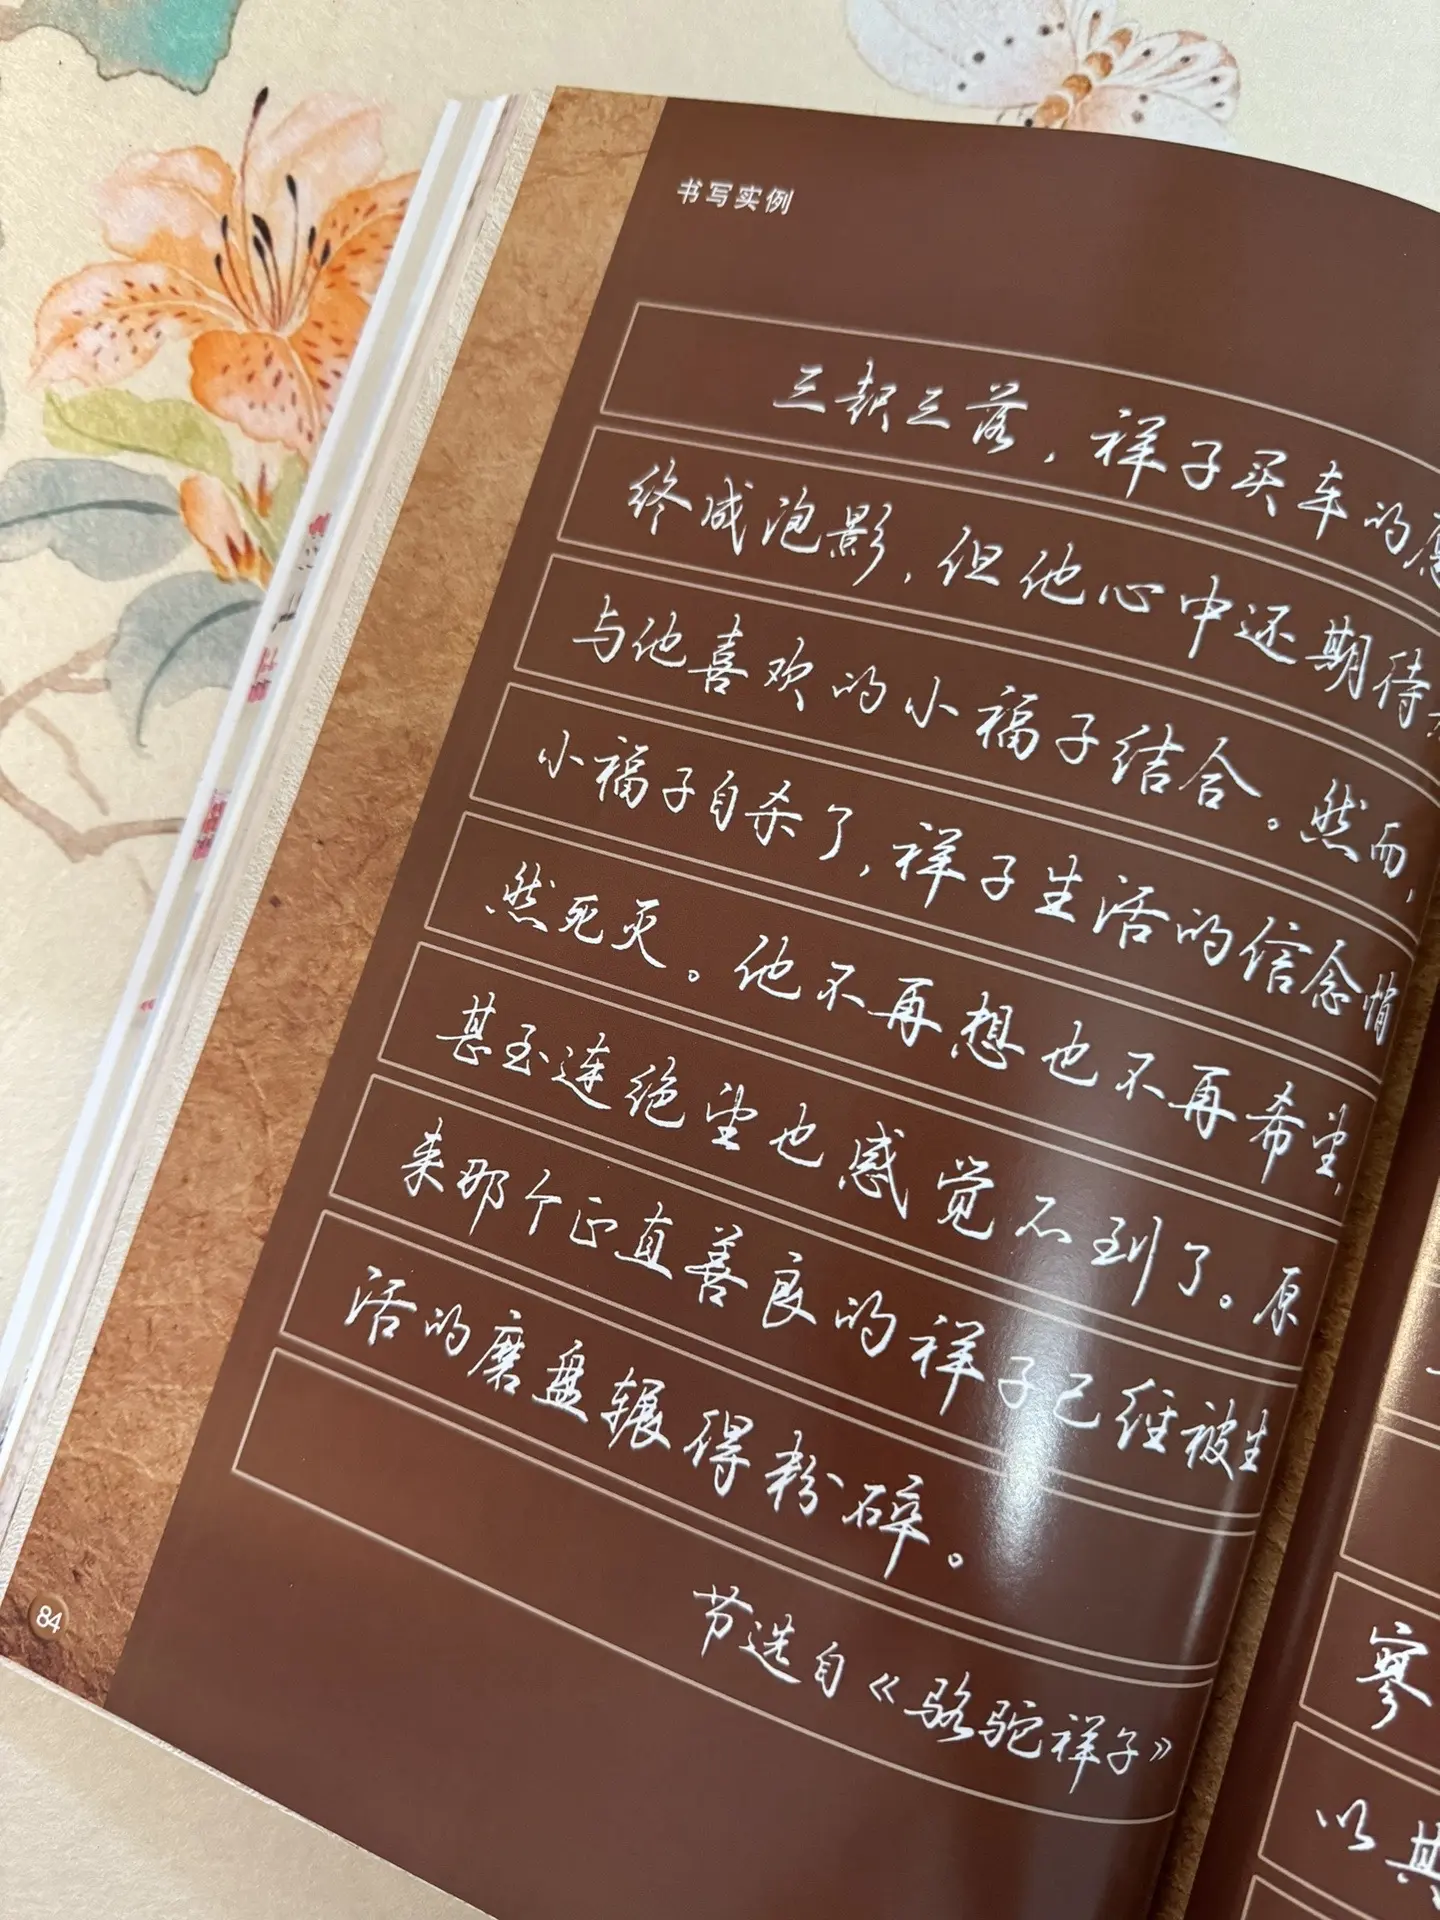 书写实例
三起三落，祥子买车的
终成泡影，但他心中还期待
与他喜欢的小福子结合。然而，
小福子自杀了，祥子生活的信念悄
然死灭。他不再想也不再希望，
甚至连绝望也感觉不到了。原
来那个正直善良的祥子已经被生
活的磨盘辗得粉碎。
节选自《骆驼祥子》
84
寥
以其